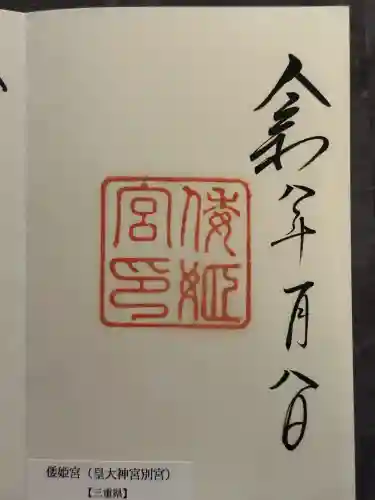 令和八年一月八日
倭姫
宮印
倭姫宮（皇大神宮別宮）
【三重県】